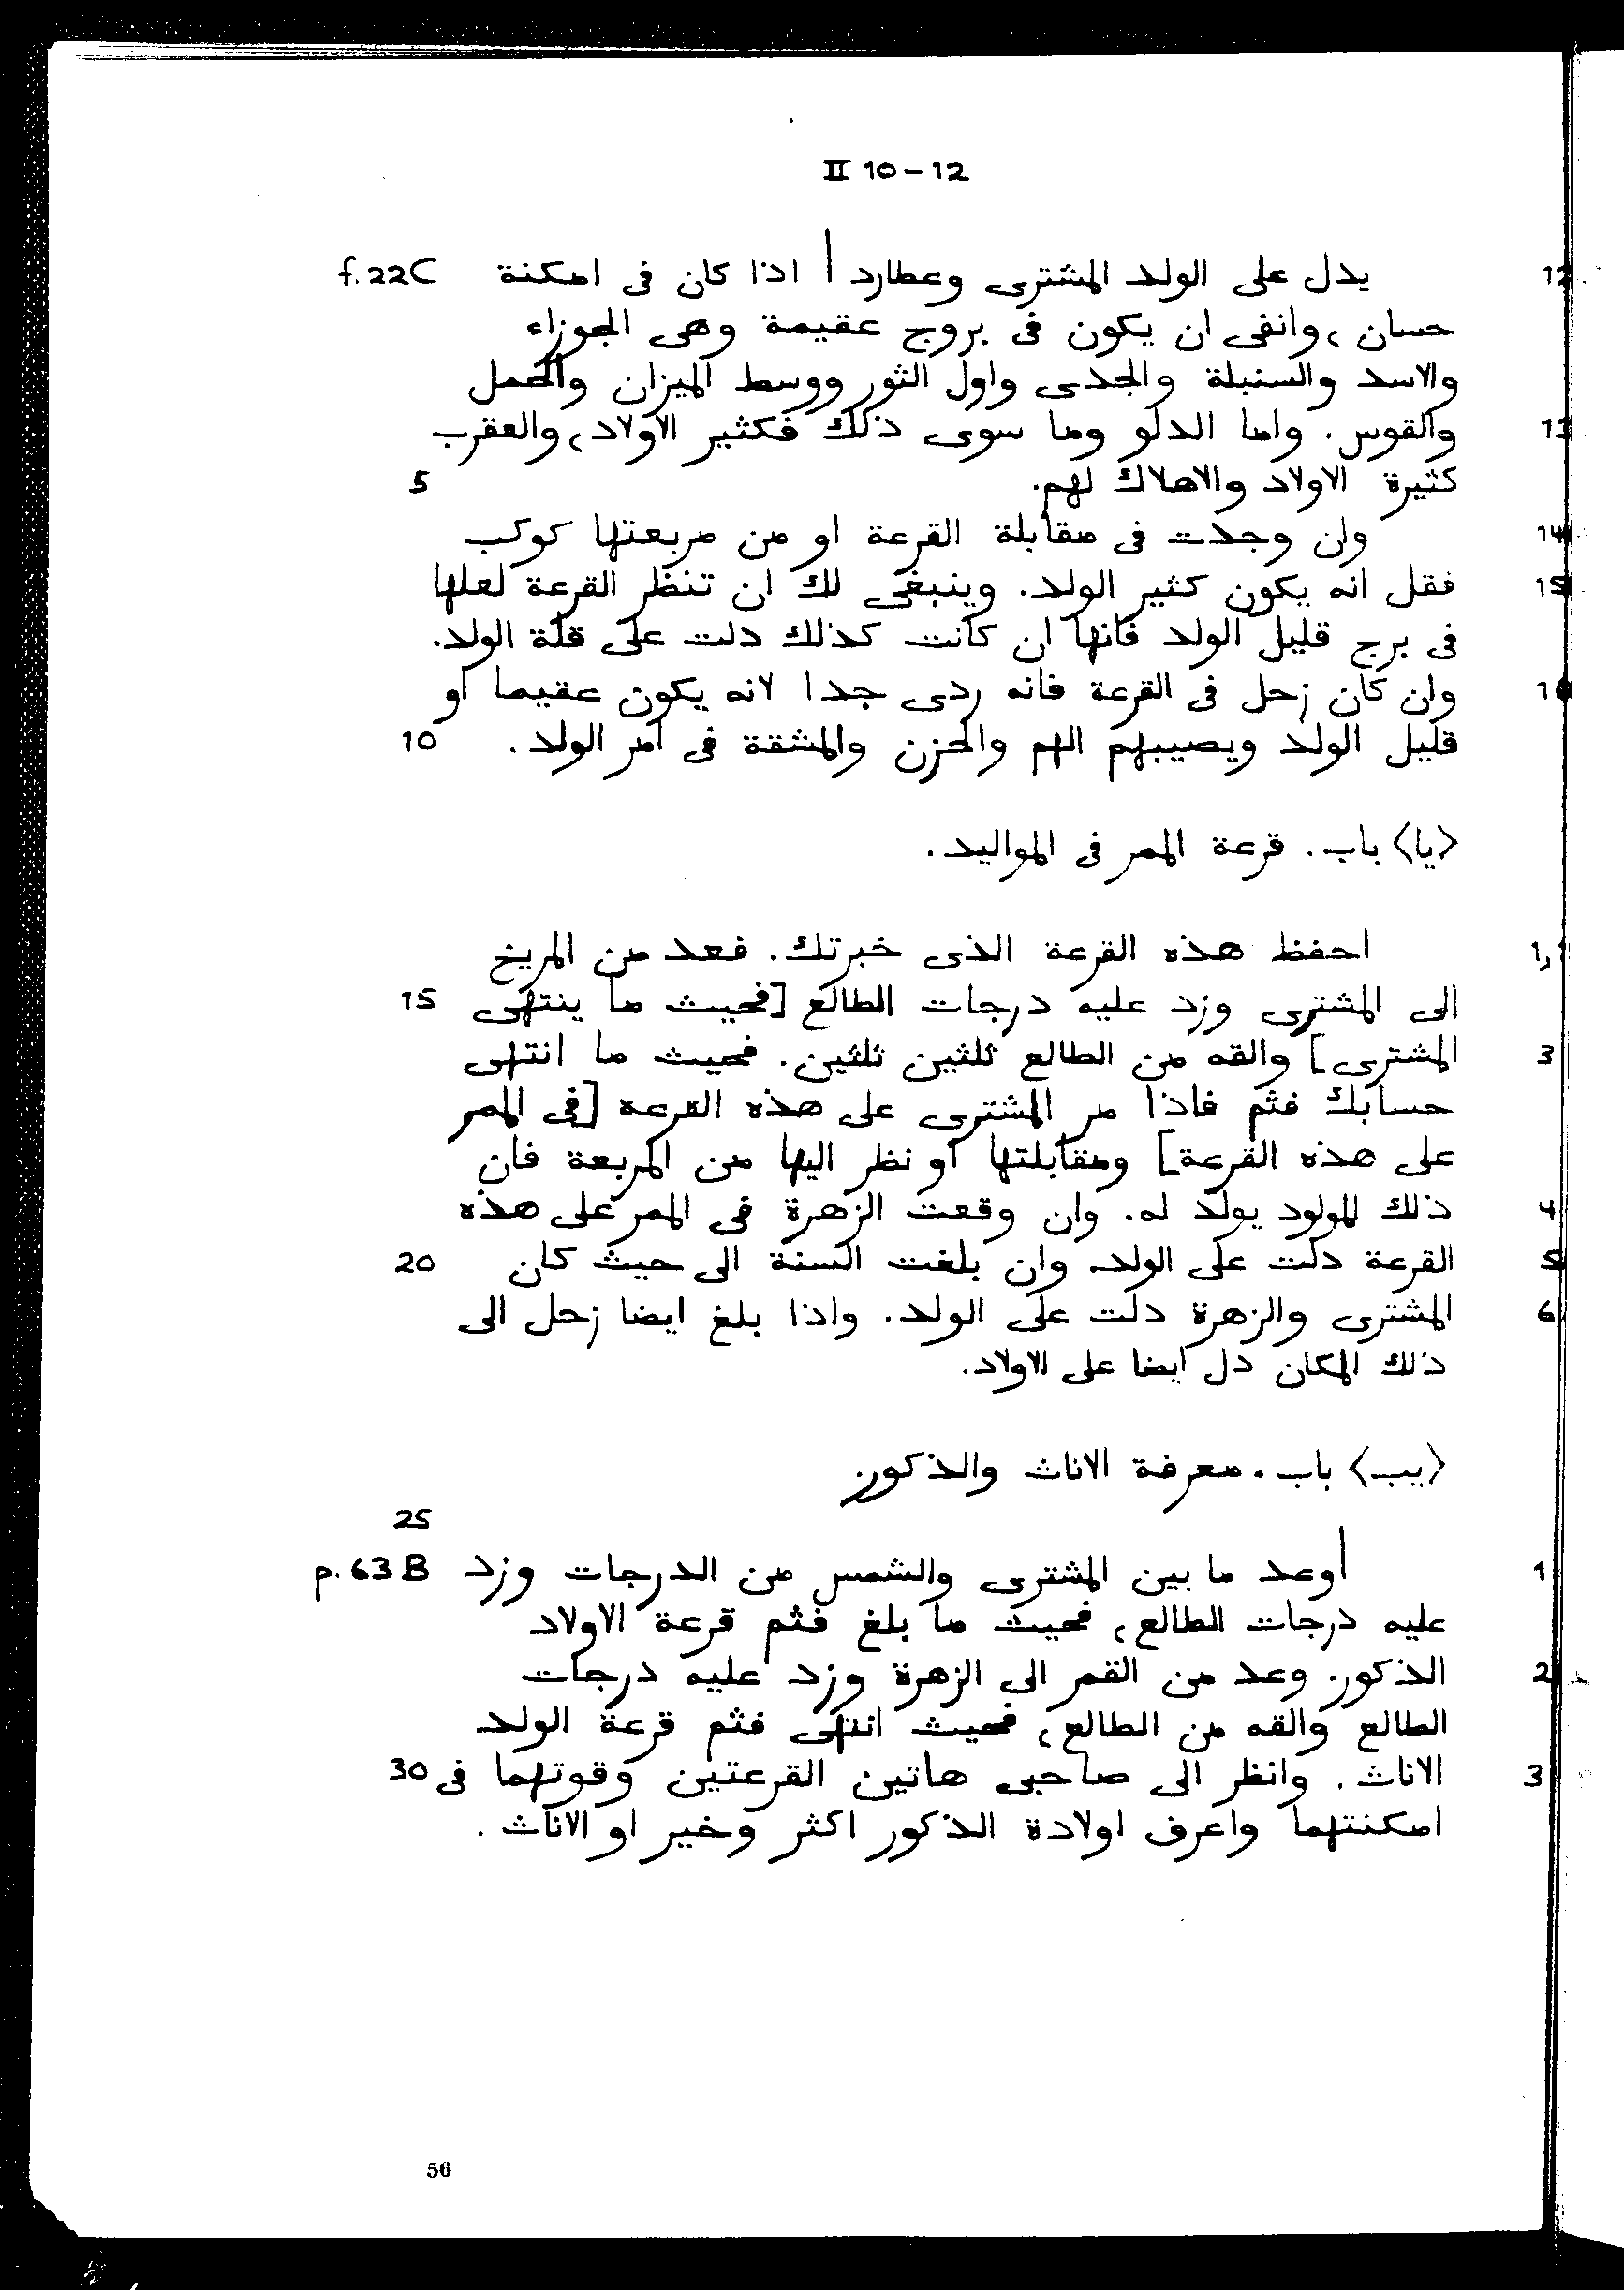 II 10-12
12 يدل على الولد المشترى وعطارد | اذا كان فى امكنة f.22C
حسان، وانفى ان يكون فى بروج عقيمة وهى الجوزاء
والاسد والسنبلة والجدى واول الثور ووسط الميزان والحمل
13 والقوس. واما الدلو وما سوى ذلك فكثير الاولاد، والعقرب
كثيرة الاولاد والاهلاك لهم. 5
14 وان وجدت فى مقابلة القرعة او من مربعتها كوكب
15 فقل انه يكون كثير الولد. وينبغى لك ان تنظر القرعة لعلها
فى برج قليل الولد فانها ان كانت كذلك دلت على قلة الولد.
16 وان كان زحل فى القرعة فانه ردى جدا لانه يكون عقيما او
قليل الولد ويصيبهم الهم والحزن والمشقة فى امر الولد. 10
〈يا〉 باب. قرعة الممر فى المواليد.
1,1 احفظ هذه القرعة الذى خبرتك. فعد من المريخ
الى المشترى وزد عليه درجات الطالع [فحيث ما ينتهى 15
3 المشترى] والقه من الطالع ثلثين ثلثين. فحيث ما انتهى
حسابك فثم فاذا مر المشترى على هذه القرعة [فى الممر
على هذه القرعة] ومقابلتها او نظر اليها من المربعة فان
4 ذلك المولود يولد له. وان وقعت الزهرة فى الممر على هذه
5 القرعة دلت على الولد. وان بلغت السنة الى حيث كان 20
6 المشترى والزهرة دلت على الولد. واذا بلغ ايضا زحل الى
ذلك المكان دل ايضا على الاولاد.
〈يب〉 باب. معرفة الاناث والذكور.
25
1 | وعد ما بين المشترى والشمس من الدرجات وزد p.63B
عليه درجات الطالع، فحيث ما بلغ فثم قرعة الاولاد
2 الذكور. وعد من القمر الى الزهرة وزد عليه درجات
الطالع والقه من الطالع، فحيث انتهى فثم قرعة الولد
3 الاناث. وانظر الى صاحبى هاتين القرعتين وقوتهما فى 30
امكنتهما واعرف اولادة الذكور اكثر وخير او الاناث.
56